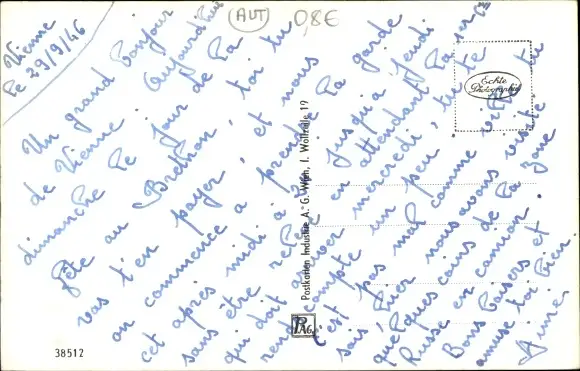 Vienne
le 29/9/46
AUT
0,8€
Un grand bonjour
de Vienne. Aujourd'hui
dimanche le jour de la
fête au Brethon, toi tu
vas t'en payer, et nous
on commence à prendre la garde
cet après midi à 2h jusqu'à jeudi
sans être relevé en attendant la
qui doit arriver mercredi, tu te
rend compte un peu vite ton
c'est pas mal comme visite
sois. Hier nous avons visité
quelques coins de la zone
Russe en camion.
Bons Baisers et
amuse toi bien
Aimé
Echte
Photographie
Postkarten Industrie A.-G. Wien, I. Wollzeile 19
PAG
38512